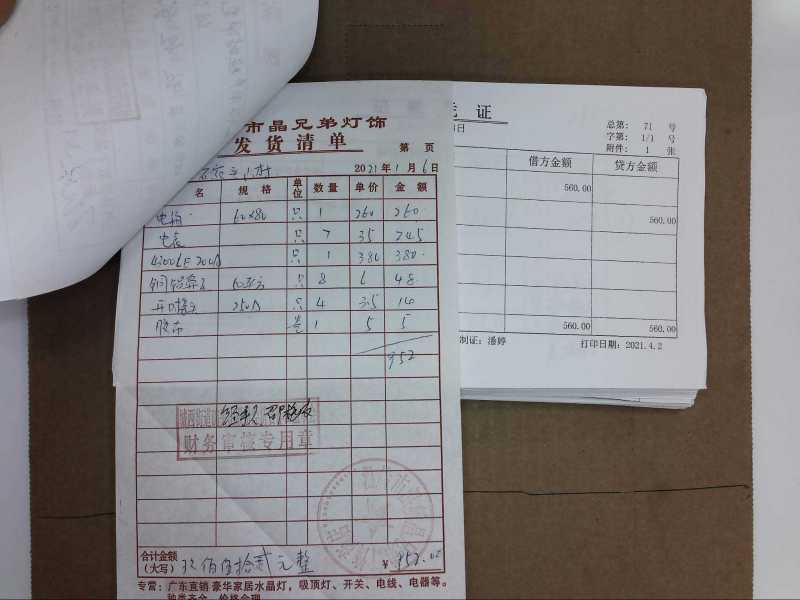 市晶兄弟灯饰
发货清单
第 页
2021年1月6日
名 规格 单位 数量 单价 金额
电箱 60x80 只 1 260 260.
电表 只 7 35 245
只 1 380 380.
铜铝鼻子 50平方 只 8 6 48
开口接头 250A 只 4 3.5 14
胶布 卷 1 5 5
952
经手人
财务审核专用章
合计金额
(大写) 玖佰伍拾贰元整 ¥952.00
专营:广东直销 豪华家居水晶灯,吸顶灯、开关、电线、电器等。
种类齐全 价格合理
凭 证
总第: 71 号
字第: 1/1 号
附件: 1 张
日
借方金额 贷方金额
560.00
560.00
560.00 560.00
制证:潘婷 打印日期:2021.4.2